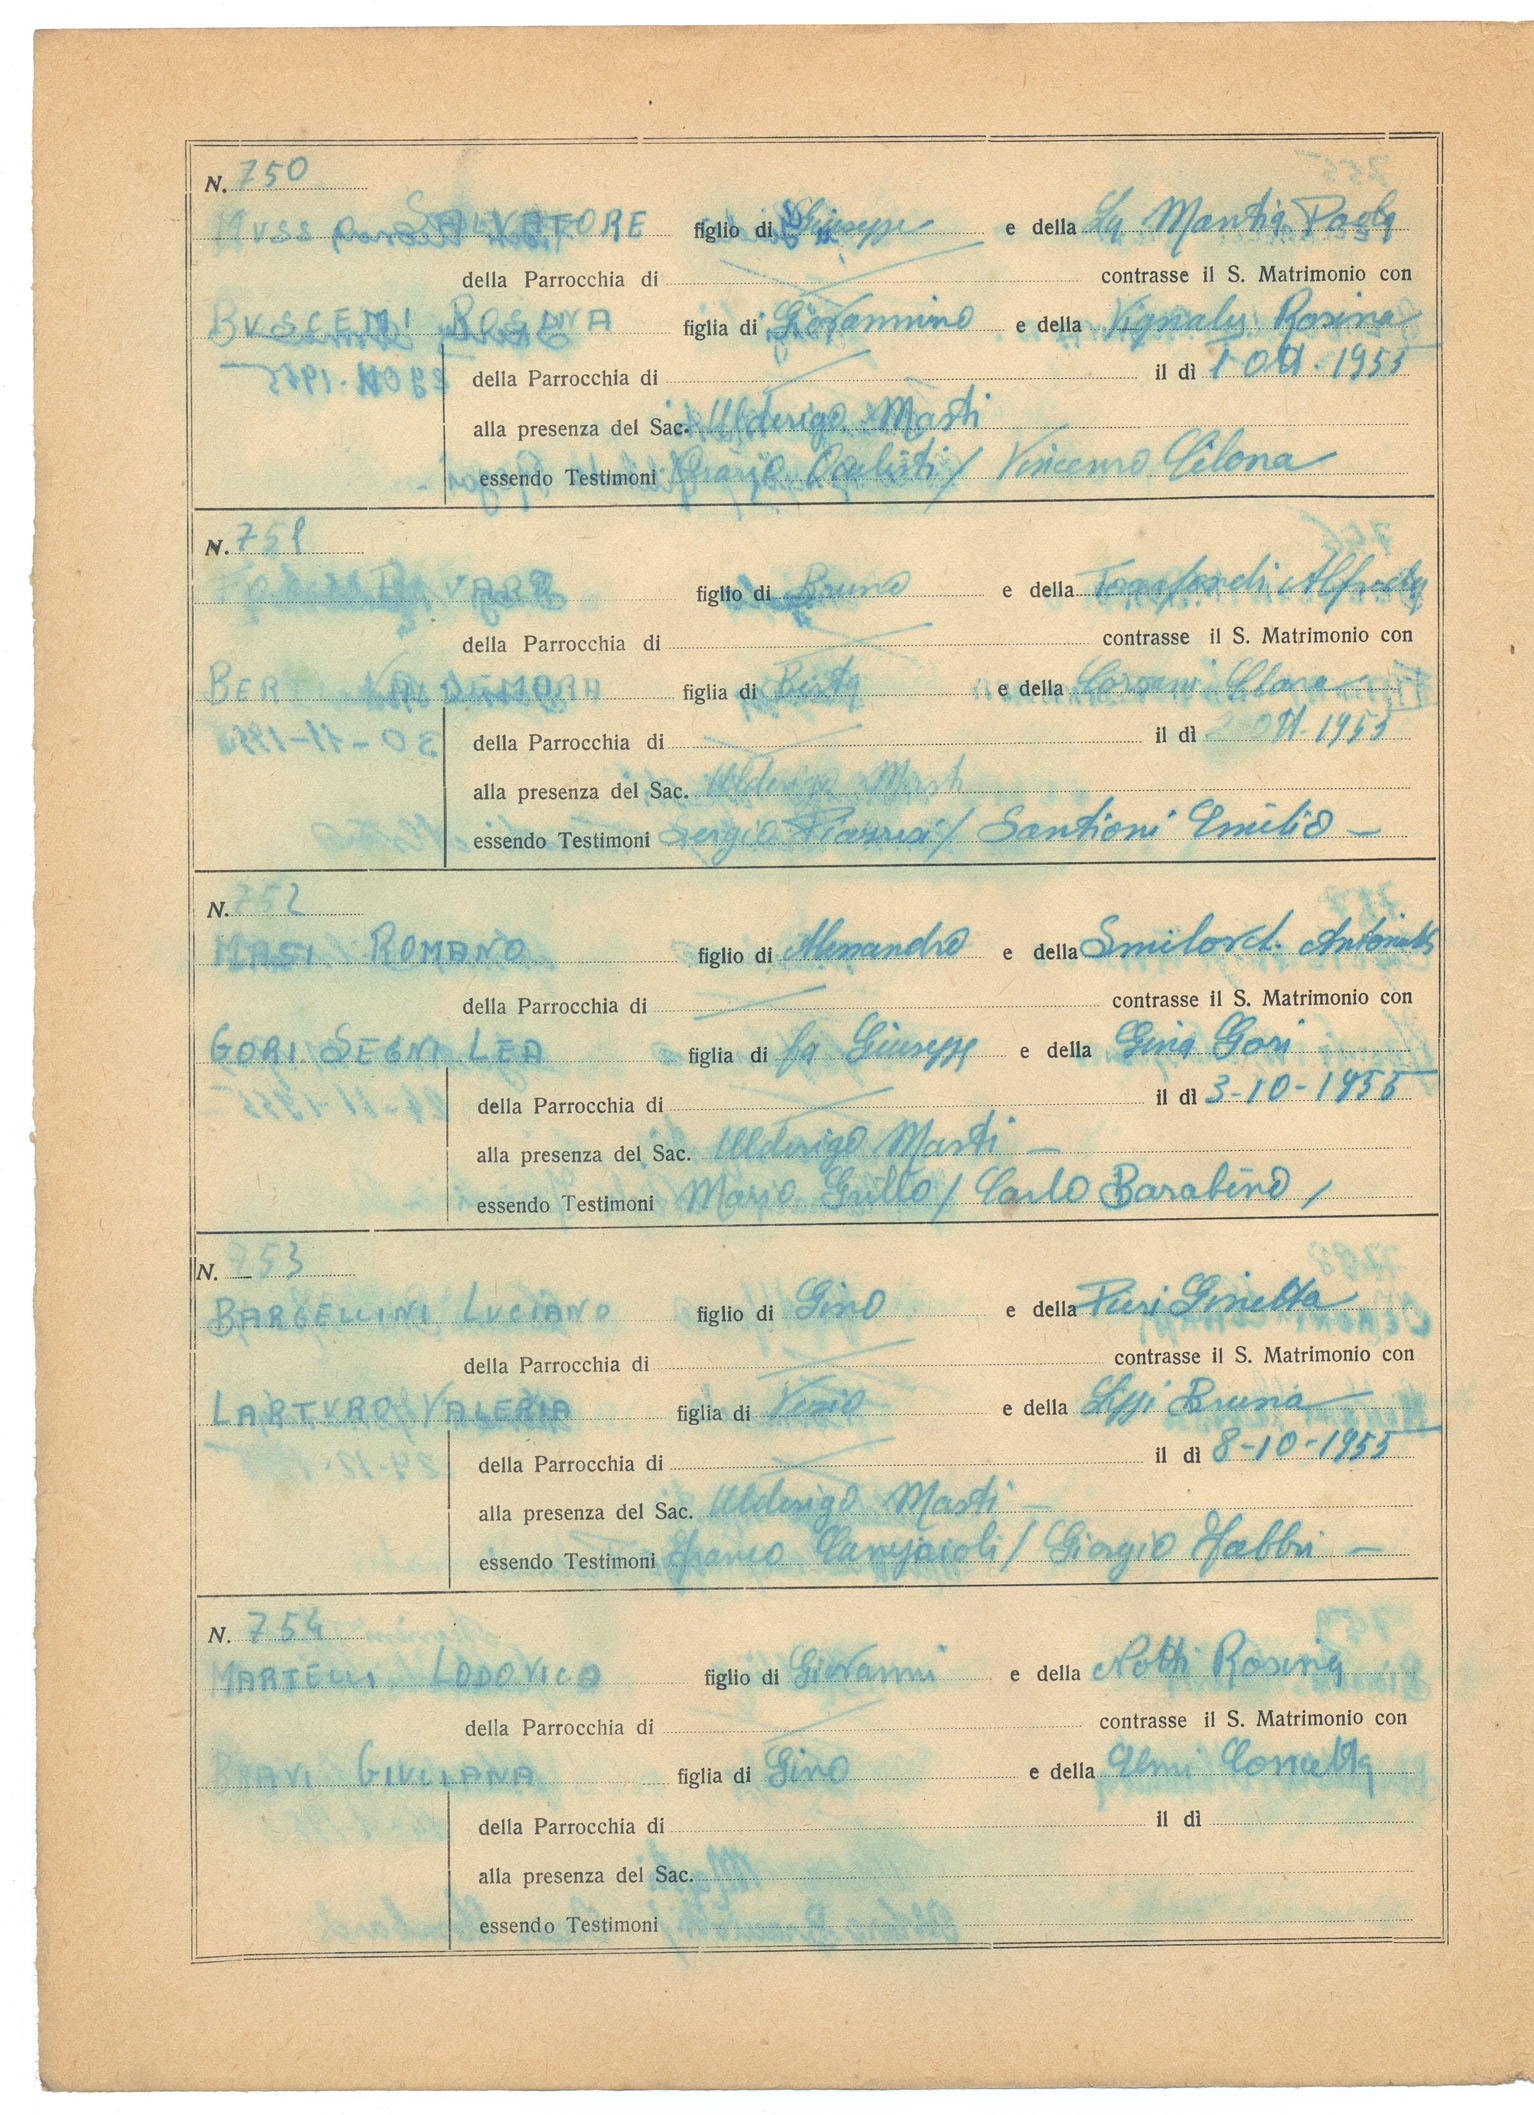 N. 750
SALVATORE figlio di Giuseppe e della La Mantia Paola
della Parrocchia di contrasse il S. Matrimonio con
BUSCEMI ROSINA figlia di Giovannino e della Rosina
della Parrocchia di il dì 1 Ott. 1955
alla presenza del Sac. Ulderigo Masti
essendo Testimoni Orazio / Vincenzo Cilona
N. 751
figlio di Bruno e della
della Parrocchia di contrasse il S. Matrimonio con
figlia di e della Clara
della Parrocchia di il dì 2 Ott. 1955
alla presenza del Sac. Ulderigo Masti
essendo Testimoni Sergio / Santioni Emilio –
N. 752
MASI ROMANO figlio di Alessandro e della
della Parrocchia di contrasse il S. Matrimonio con
GORI SEGNI LEA figlia di fu Giuseppe e della Gina Gori
della Parrocchia di il dì 3-10-1955
alla presenza del Sac. Ulderigo Masti –
essendo Testimoni Mario Grillo / Carlo Barabino /
N. 753
BARGELLINI LUCIANO figlio di Gino e della Pieri Ginetta
della Parrocchia di contrasse il S. Matrimonio con
LARTURO VALERIA figlia di Vezio e della Bruna
della Parrocchia di il dì 8-10-1955
alla presenza del Sac. Ulderigo Masti –
essendo Testimoni Franco / Giorgio Fabbri –
N. 754
MARTELLI LODOVICO figlio di Giovanni e della Notti Rosina
della Parrocchia di contrasse il S. Matrimonio con
GIULIANA figlia di Gino e della Concetta
della Parrocchia di il dì
alla presenza del Sac.
essendo Testimoni